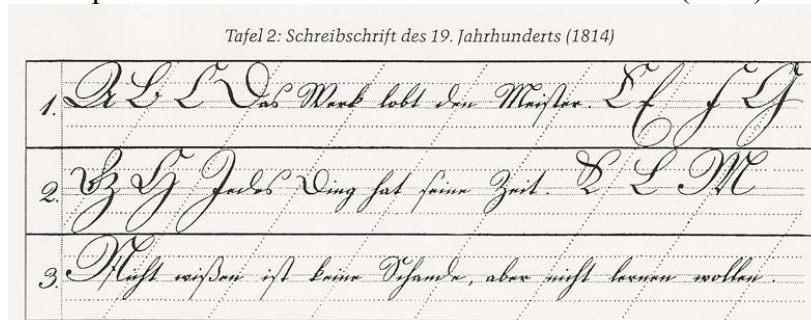 Tafel 2: Schreibschrift des 19. Jahrhunderts (1814)
1. A B C Das Werk lobt den Meister. E F G
2. H Jedes Ding hat seine Zeit. K L M
3. Nicht wißen ist keine Schande, aber nicht lernen wollen.